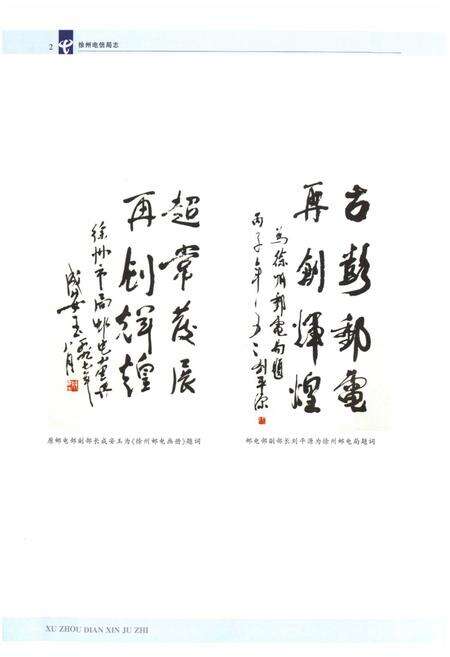 2 徐州电信局志
超常发展
再创辉煌
徐州市局邮电画册
成安玉一九九七年
八月
古彭郵電
再創輝煌
為徐州郵電局題
丙子年
刘平源
原邮电部副部长成安玉为《徐州邮电画册》题词
邮电部副部长刘平源为徐州邮电局题词
XU ZHOU DIAN XIN JU ZHI